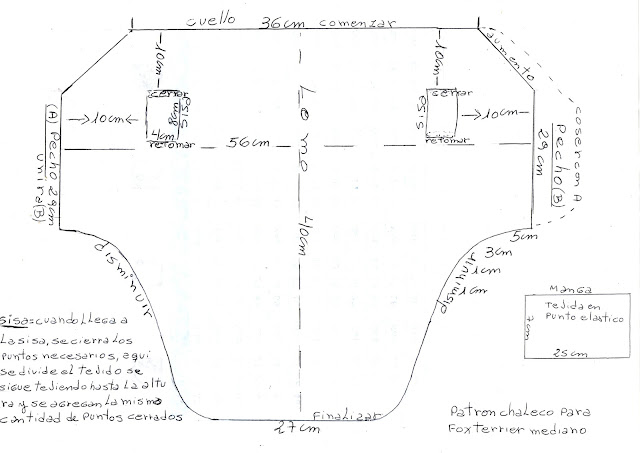 cuello 36cm comenzar
10cm
10cm
aumento
cerrar
8cm
sisa
4cm
retomar
→10cm←
cerrar
sisa
retomar
→10cm←
56cm
Lomo
40cm
(A) Pecho 29cm
unir a (B)
Pecho (B)
29cm
coser con A
5cm
3cm
1cm
1cm
disminuir
disminuir
Manga
Tejida en
Punto elastico
7cm
25cm
sisa: cuando llega a
la sisa, se cierra los
puntos necesarios, aqui
se divide el tejido se
sigue tejiendo hasta la altu
ra y se agregan la misma
cantidad de puntos cerrados
Finalizar
27cm
Patron chaleco para
Fox terrier mediano